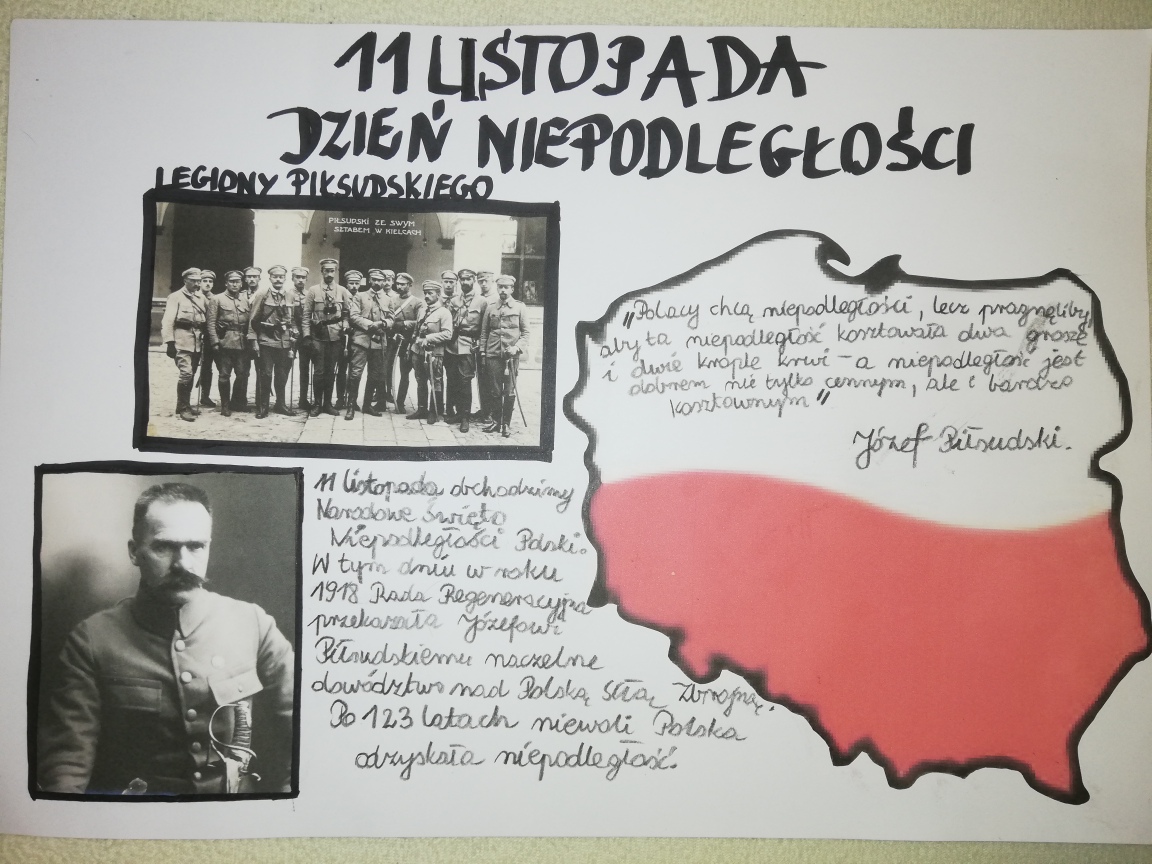 11 LISTOPADA
DZIEŃ NIEPODLEGŁOŚCI
LEGIONY PIŁSUDSKIEGO
PIŁSUDSKI ZE SWYM
SZTABEM W KIELCACH
"Polacy chcą niepodległości, lecz pragnęliby
aby ta niepodległość kosztowała dwa grosze
i dwie krople krwi - a niepodległość jest
dobrem nie tylko cennym, ale i bardzo
kosztownym"
Józef Piłsudski.
11 listopada obchodzimy
Narodowe Święto
Niepodległości Polski.
W tym dniu w roku
1918 Rada Regeneracyjna
przekazała Józefowi
Piłsudskiemu naczelne
dowództwo nad Polską Siłą Zbrojną.
Po 123 latach niewoli Polska
odzyskała niepodległość.